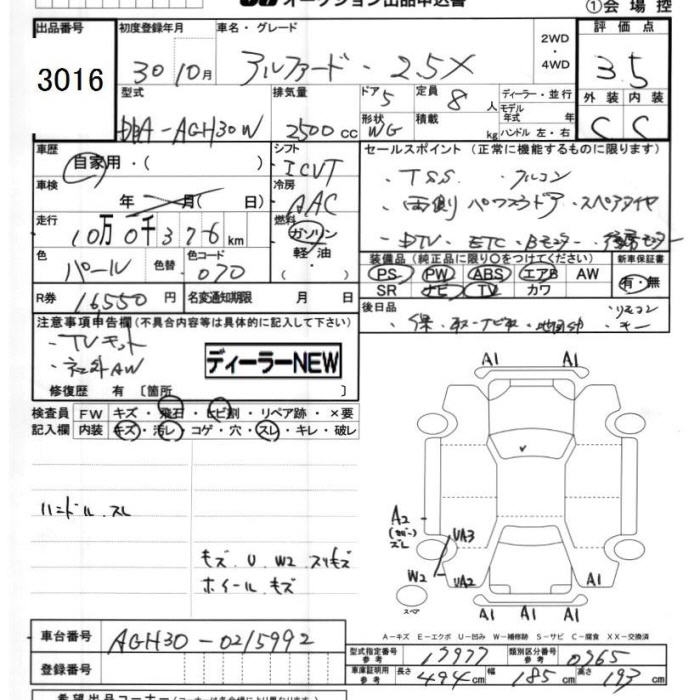 オークション出品申込書
①会場控
出品番号 初度登録年月 車名・グレード 評価点
3016 30 10月 アルファード・2.5X 2WD・4WD 3.5
型式 排気量 ドア 5 定員 8人 ディーラー・並行 外装 内装
DBA-AGH30W 2500cc 形状 WG 積載 kg モデル年式 年式 ハンドル 左・右 C C
車歴 自家用・( ) シフト ICVT セールスポイント (正常に機能するものに限ります)
・TSS ・フルコン
車検 年 月( 日) 冷房 AAC ・両側パワスラドア・スペアタイヤ
走行 10万0千376km 燃料 ガソリン・軽油・( ) ・DTV・ETC・Bモニター・後席モニター
色 パール 色替 色コード 070
装備品 (純正品に限り○をつけてください) 新車保証書
PS PW ABS エアB AW 有・無
SR ナビ TV カワ
R券 16,550円 名変通期限 月 日
後日品 ・保・取・ナビ取・地図SD ・リモコン ・キー
注意事項申告欄(不具合内容等は具体的に記入して下さい)
・TVキット
・社外AW
ディーラーNEW
修復歴 有 〔箇所 〕
検査員 FW キズ・飛石・ヒビ割・リペア跡・×要
記入欄 内装 キズ・汚レ・コゲ・穴・スレ・キレ・破レ
ハンドル スレ
キズ U W2 スリキズ
ホイール キズ
A1 A1
A2
(カバー)
ズレ
UA3
W2 UA2 A1
スペア
A1 A1 A1
A-キズ E-エクボ U-凹み W-補修跡 S-サビ C-腐食 XX-交換済
車台番号 AGH30-0215992
型式指定番号 参考 17977 類別区分番号 参考 0765
登録番号 車庫証明用 参考 長さ 494cm 幅 185cm 高さ 193cm
希望出品コーナー